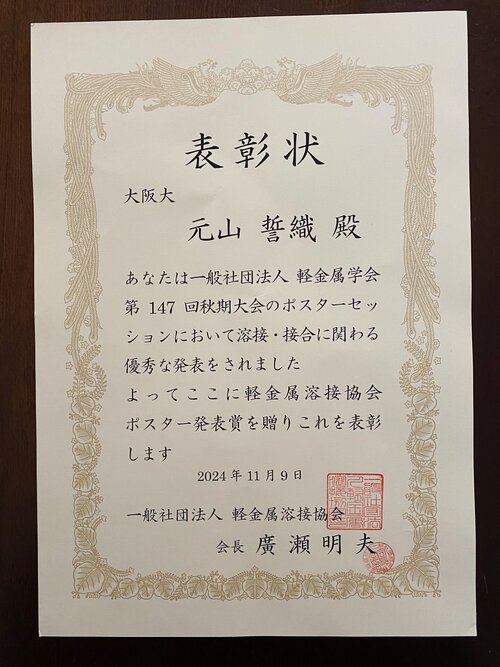 表彰状
大阪大
元山 誓織 殿
あなたは一般社団法人 軽金属学会
第 147 回秋期大会のポスターセッ
ションにおいて溶接・接合に関わる
優秀な発表をされました
よってここに軽金属溶接協会
ポスター発表賞を贈りこれを表彰
します
2024 年 11 月 9 日
一般社団法人 軽金属溶接協会
会長 廣瀬明夫